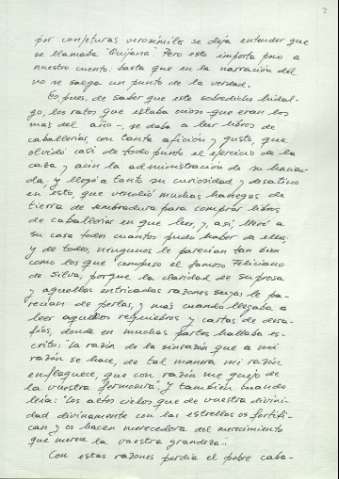 2
por conjeturas verosímiles se deja entender que
se llamaba "Quijana". Pero esto importa poco a
nuestro cuento: basta que en la narración dél
no se salga un punto de la verdad.
Es, pues, de saber que este sobredicho hidal-
go, los ratos que estaba ocioso —que eran los
más del año—, se daba a leer libros de
caballerías, con tanta afición y gusto, que
olvidó casi de todo punto el ejercicio de la
caza y aun la administración de su hacien-
da; y llegó a tanto su curiosidad y desatino
en esto, que vendió muchas hanegas de
tierra de sembradura para comprar libros
de caballerías en que leer, y, así, llevó a
su casa todos cuantos pudo haber de ellos;
y de todos, ningunos le parecían tan bien
como los que compuso el famoso Feliciano
de Silva, porque la claridad de su prosa
y aquellas entricadas razones suyas le pa-
recían de perlas, y más cuando llegaba a
leer aquellos requiebros y cartas de desa-
fíos, donde en muchas partes hallaba es-
crito: "La razón de la sinrazón que a mi
razón se hace, de tal manera mi razón
enflaquece, que con razón me quejo de
la vuestra fermosura". Y también cuando
leía: "Los altos cielos que de vuestra divini-
dad divinamente con las estrellas os fortifi-
can y os hacen merecedora del merecimiento
que merece la vuestra grandeza..."
Con estas razones perdía el pobre caba-